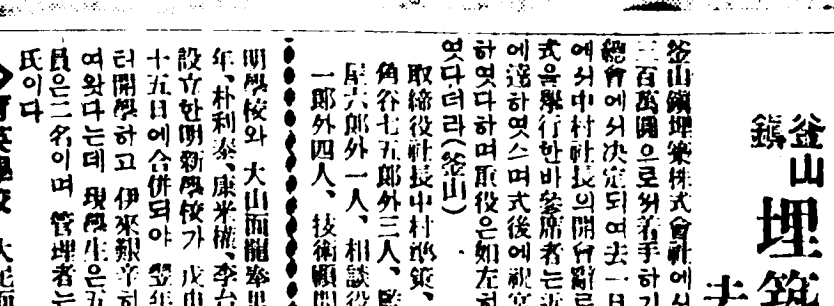 釜山鎭
埋築
釜山鎭埋築株式會社에서
三百萬圓으로써着手하기
總會에서决定되여去一日
에서中村社長의開會辭로
式을擧行한바參席者는近
에達하엿스며式後에祝宴
하엿다하며取役은如左하
엿다더라(釜山)
取締役社長中村準策、
角谷七五郞外三人、監
屋六郞外一人、相談役
一郞外四人、技術顧問
明學校와 大山面龍奉里
年、朴利泰、康米權、李台
設立한明新學校가 戊申
十五日에合併되야 翌年
터開學하고 伊來艱辛히
여왓다는데 現學生은五
員은二名이며 管理者는
氏이다
英學校